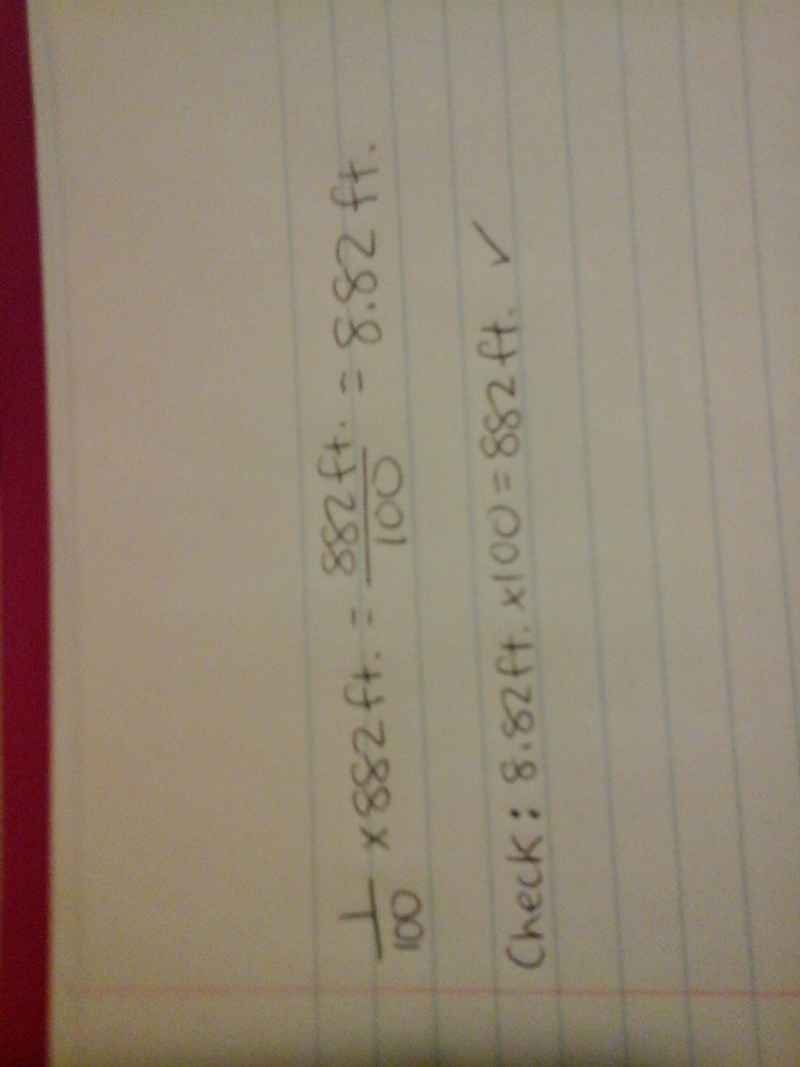 1/100 × 882 ft. = 882 ft./100 = 8.82 ft.
Check: 8.82 ft. ×100 = 882 ft. ✓